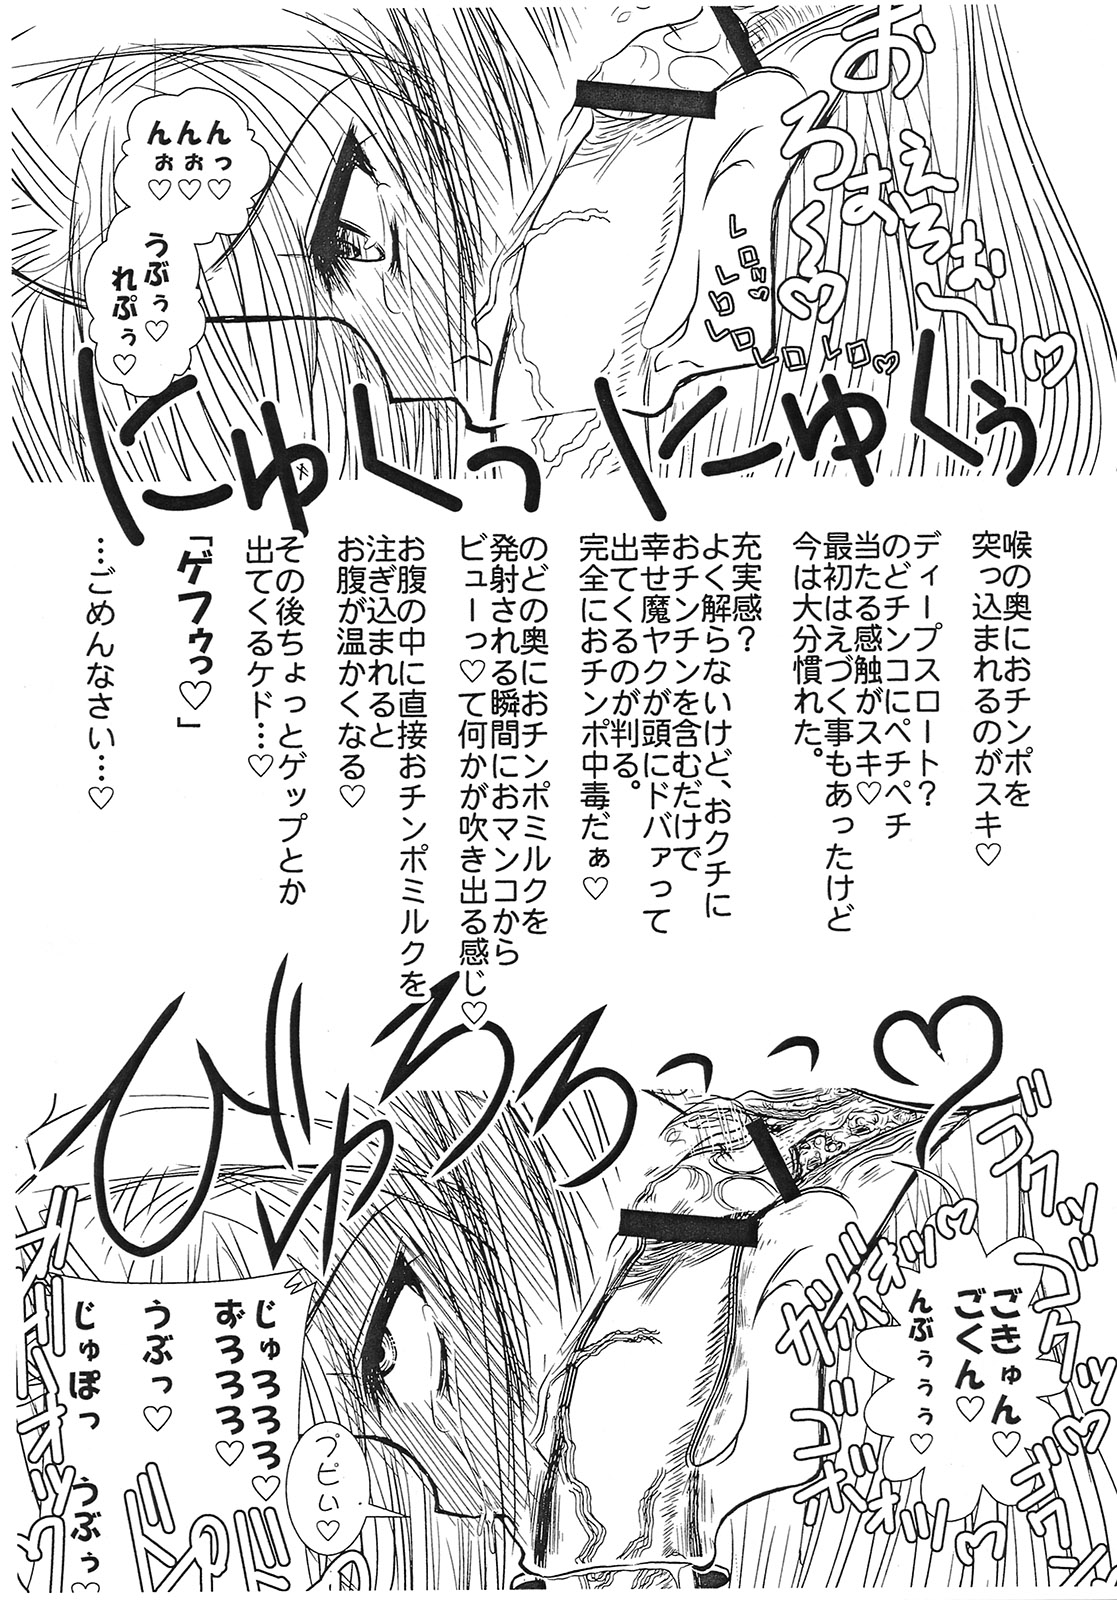 んっ♡
んぉ♡
んぉ♡
うぶぅ♡
れぷぅ♡
おろぉ～♡
えろぉ～♡
レロッ♡
レロレロ
レロレロ♡
にゅくっ
にゅくぅ
喉の奥におチンポを
突っ込まれるのがスキ♡
ディープスロート？
のどチンコにペチペチ
当たる感触がスキ♡
最初はえづく事もあったけど
今は大分慣れた。
充実感？
よく解らないけど、おクチに
おチンチンを含むだけで
幸せ魔ヤクが頭にドバァって
出てくるのが判る。
完全におチンポ中毒だぁ♡
のどの奥におチンポミルクを
発射される瞬間におマンコから
ビューっ♡て何かが吹き出る感じ♡
お腹の中に直接おチンポミルクを
注ぎ込まれると
お腹が温かくなる♡
その後ちょっとゲップとか
出てくるケド…♡
「ゲフゥっ♡」
…ごめんなさい…♡
びゅろろっっ♡
ゴクッ
ゴクッ
ごきゅん♡
ごくん♡
んぶぅぅぅ♡
じゅろろろ♡
おろろろろ♡
うぶっ♡
じゅぽっ
うぶぅ♡
プピぃ♡